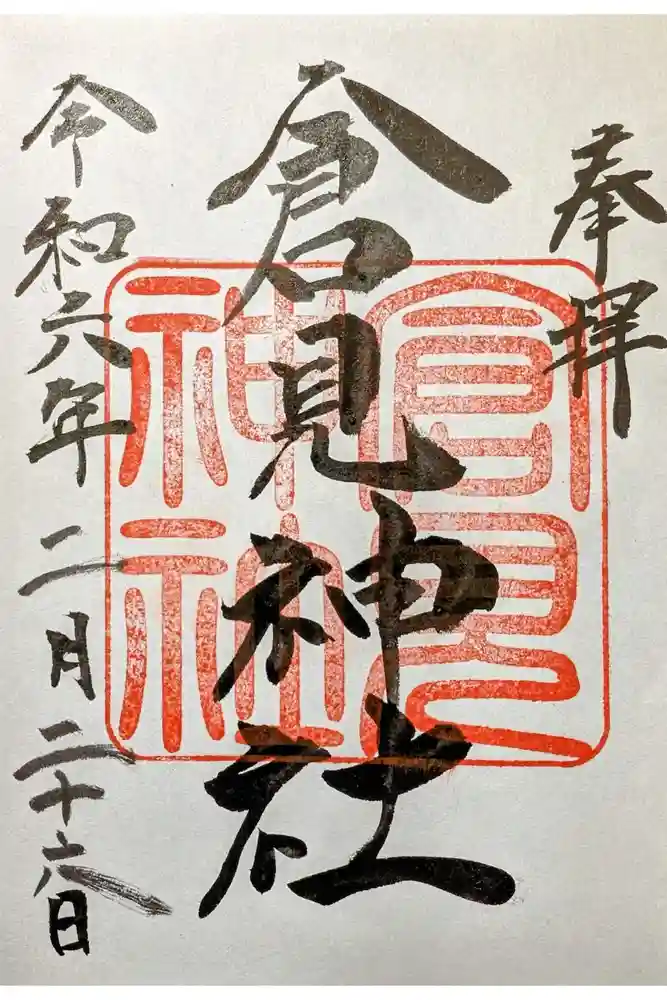 奉拝
倉見神社
倉見神社
令和六年二月二十六日